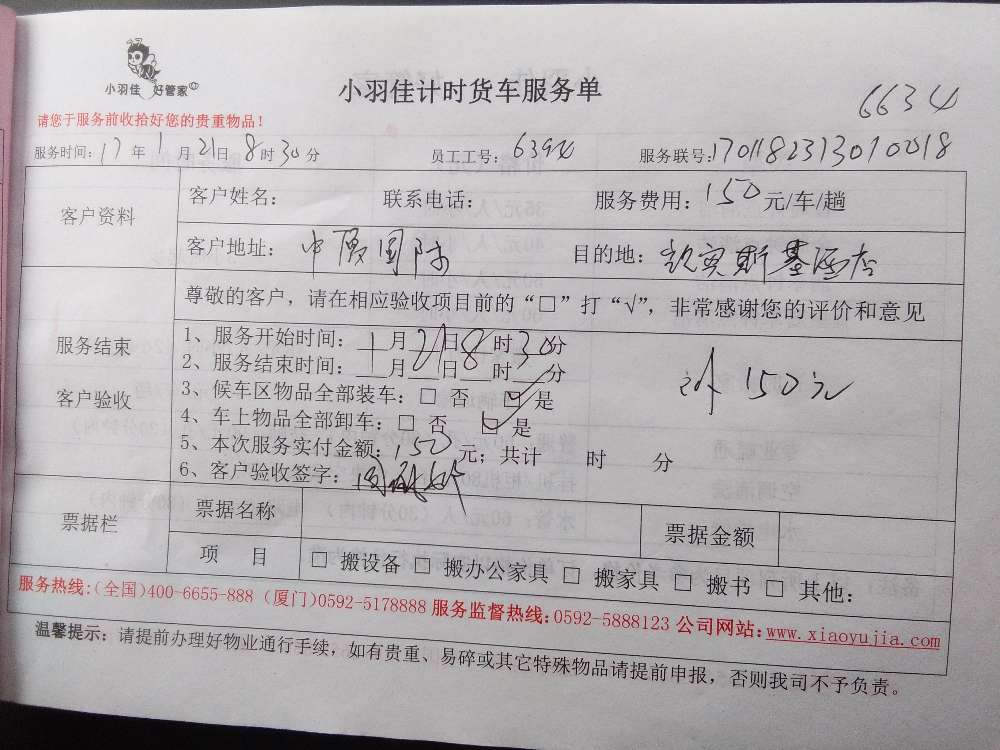 小羽佳 好管家
小羽佳计时货车服务单
6634
请您于服务前收拾好您的贵重物品！
服务时间：17年1月21日8时30分 员工工号：6394 服务联号：1701182313010018
客户资料
客户姓名： 联系电话： 服务费用：150元/车/趟
客户地址：中厦国际 目的地：斯基酒店
尊敬的客户，请在相应验收项目前的“□”打“√”，非常感谢您的评价和意见
服务结束
客户验收
1、服务开始时间：1月21日8时30分
2、服务结束时间：___月___日___时___分
3、候车区物品全部装车：□ 否 ☑ 是
4、车上物品全部卸车：□ 否 ☑ 是
5、本次服务实付金额：150元；共计 时 分
6、客户验收签字：
150元
票据栏
票据名称 票据金额
项 目 □ 搬设备 □ 搬办公家具 □ 搬家具 □ 搬书 □ 其他：
服务热线:(全国)400-6655-888 (厦门)0592-5178888 服务监督热线:0592-5888123 公司网站:www.xiaoyujia.com
温馨提示：请提前办理好物业通行手续，如有贵重、易碎或其它特殊物品请提前申报，否则我司不予负责。